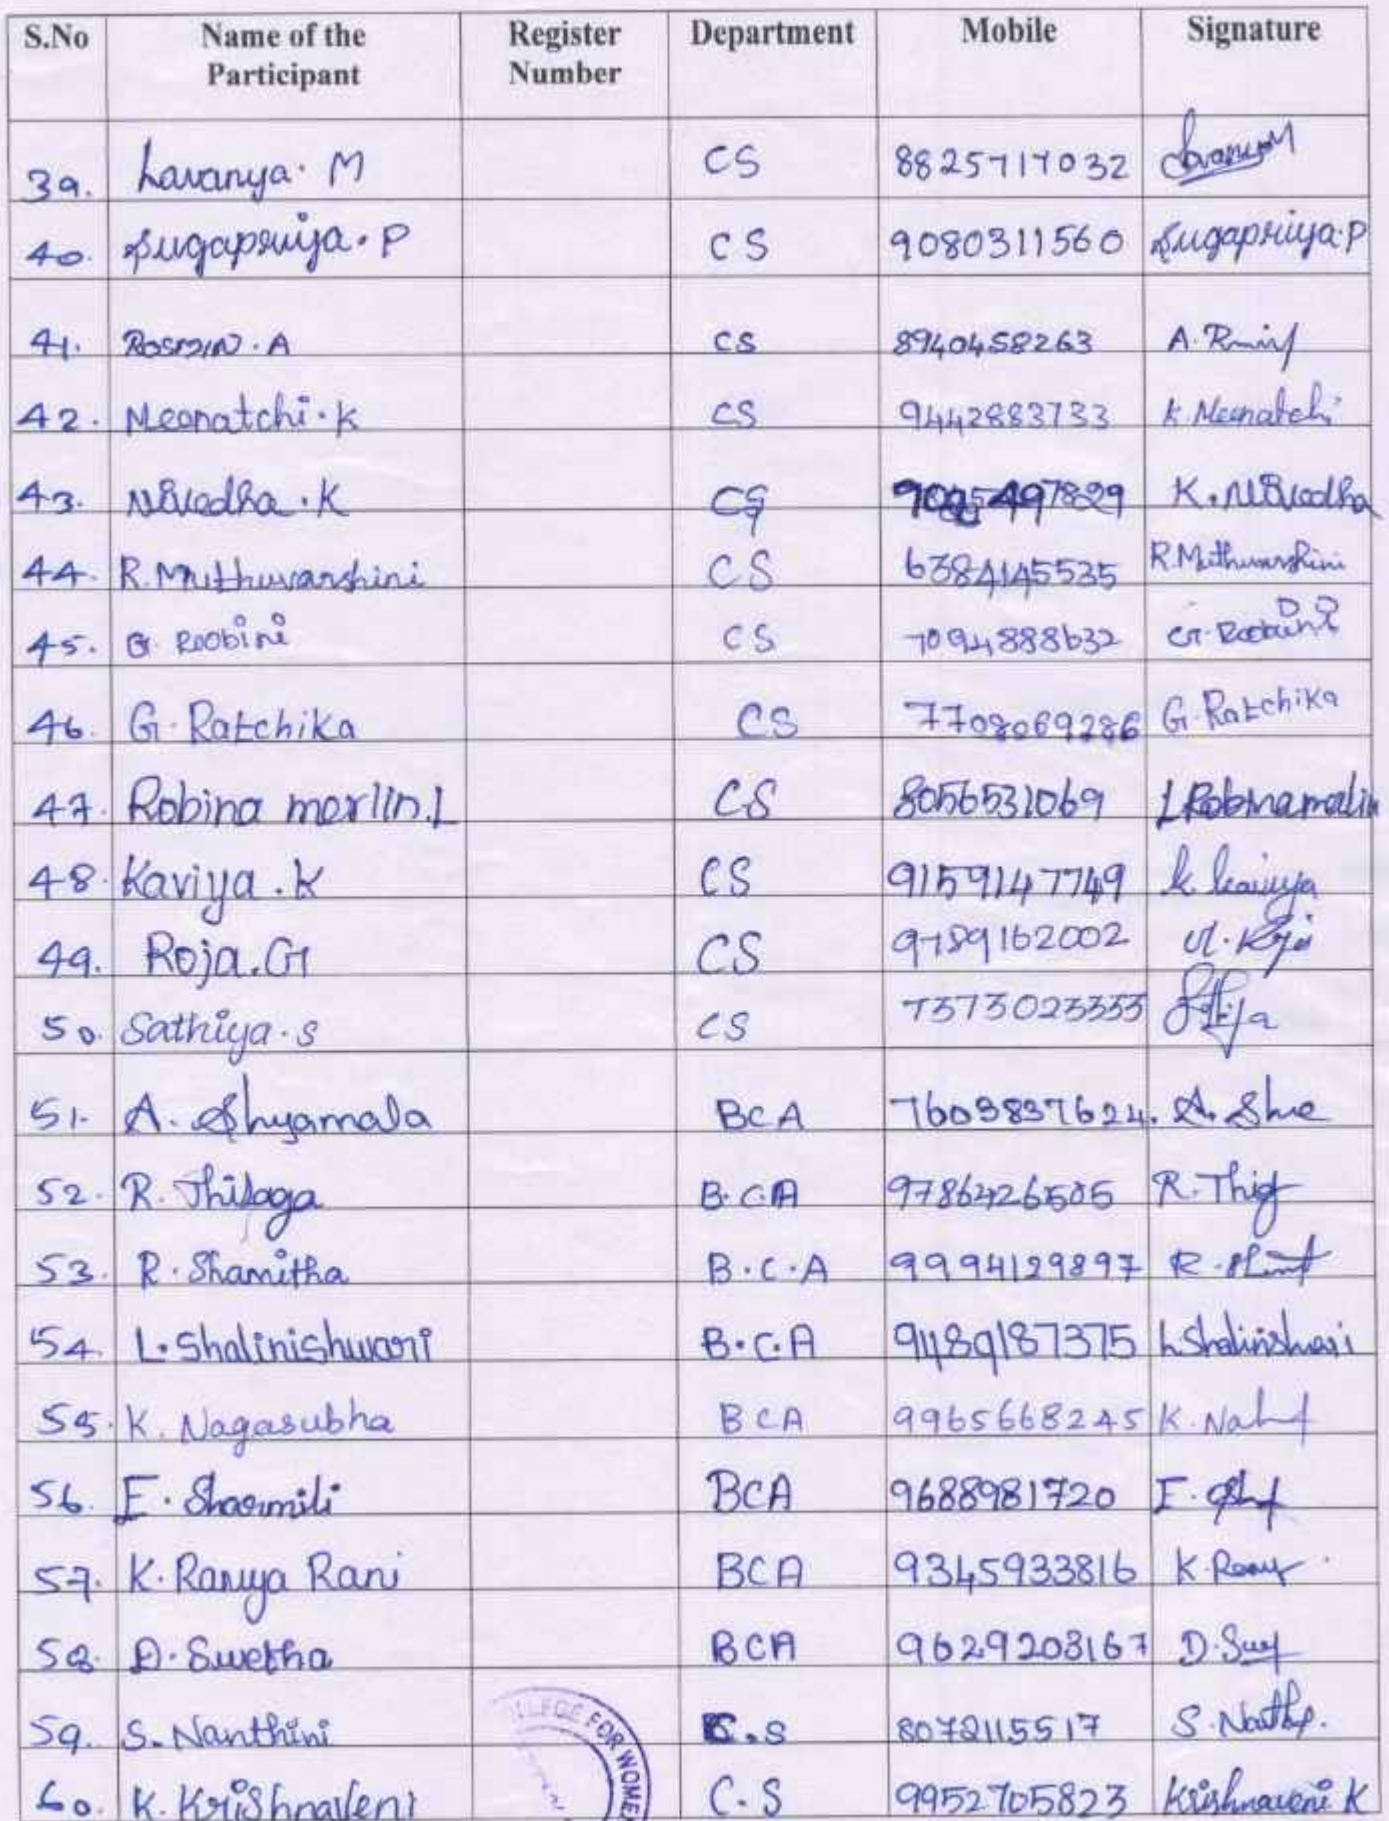 S.No Name of the Participant Register Number Department Mobile Signature
39. Lavanya. M CS 8825717032 LavanyaM
40. Sugapriya. P CS 9080311560 Sugapriya.P
41. ROSMIN. A CS 8940458263 A.
42. Meenatchi. K CS 9442883733 K Meenatchi
43. Nivedha. K CS 497829 K. Nivedha
44. R. Muthuvarshini CS 6384145535 R.Muthuvarshini
45. G. Roobini CS 7094888632 G. Roobini
46. G. Ratchika CS 7708069286 G. Ratchika
47. Robina merlin.L CS 8056531069 L Robinamerlin
48. Kaviya. K CS 9159147749 K Kaviya
49. Roja. G CS 9789162002 Roja
50. Sathiya. S CS 7373023333
51. A. Shyamala BCA 7603837624. A. Shc
52. R. Thilaga B.C.A 9786426505 R. Thig
53. R. Shamitha B.C.A 9994129897 R.
54. L. Shalinishwari B.C.A 9489187375 L Shalinishwari
55. K. Nagasubha BCA 9965668245 K.
56. E. Sharmili BCA 9688981720 E.
57. K. Ramya Rani BCA 9345933816 K.
58. D. Swetha BCA 9629203167 D.
59. S. Nanthini C.S 8072115517 S.
60. K. Krishnaveni C.S 9952705823 Krishnaveni K
FOR WOMEN